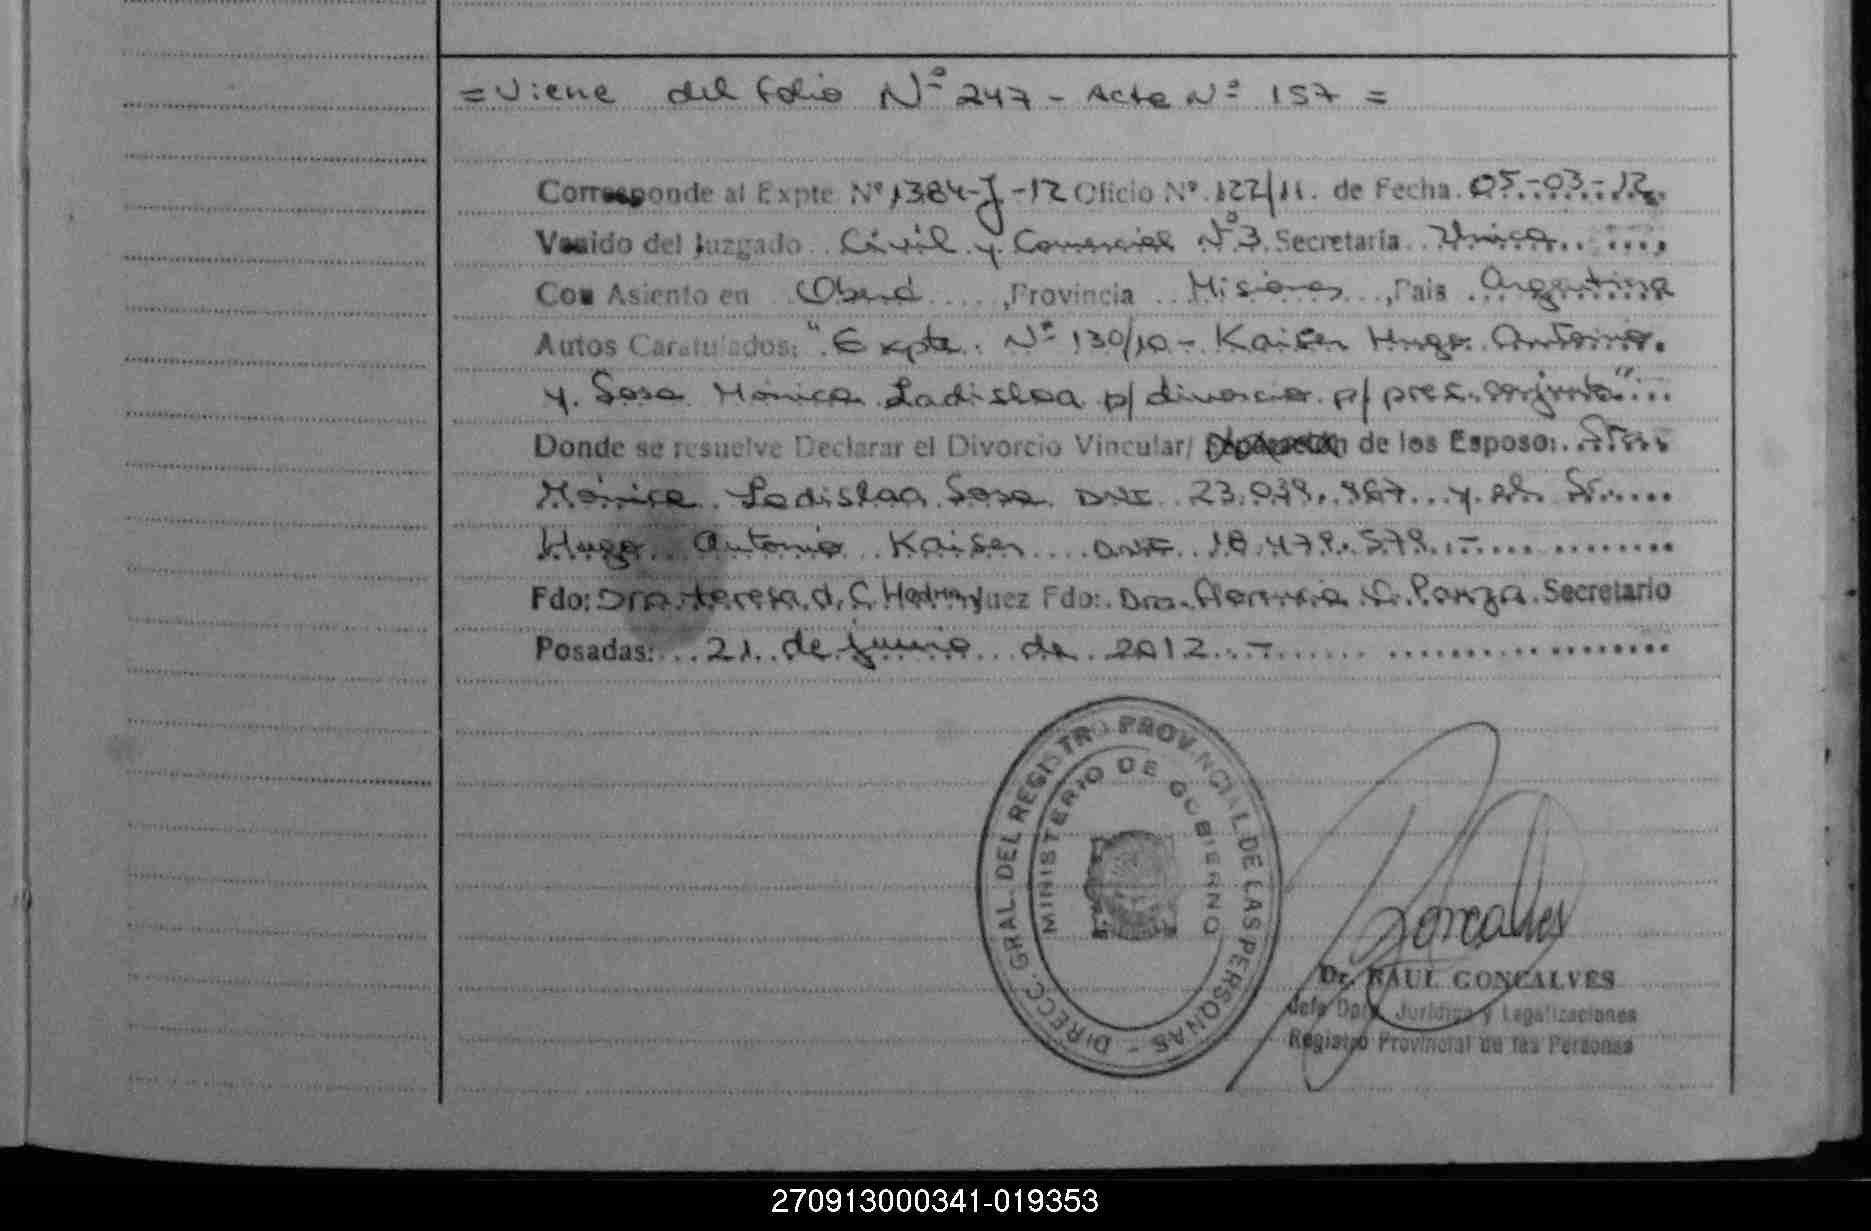 = Viene del folio Nº 247 - Acta Nº 157 =
Corresponde al Expte Nº 1384-J-12 Oficio Nº 122/11. de Fecha 05-03-12.
Venido del Juzgado Civil y Comercial Nº 3. Secretaría Unica
Con Asiento en Oberá, Provincia Misiones, Pais Argentina
Autos Caratulados: "Expte. Nº 130/10 - Kaiser Hugo Antonio.
y. Sosa Mónica Ladislaa p/ divorcio p/ pres. conjunta"
Donde se resuelve Declarar el Divorcio Vincular/ de los Esposo: Sra.
Mónica Ladislaa Sosa DNI 23.039.967 y el Sr.
Hugo Antonio Kaiser DNI 18.479.579.-
Fdo: Dra. Teresa d. C. Juez Fdo: Dra. Florencia Panza. Secretario
Posadas: 21 de junio de 2012.-
DIRECC. GRAL. DEL REGISTRO PROVINCIAL DE LAS PERSONAS -
MINISTERIO DE GOBIERNO
Goncalves
Dr. RAUL GONCALVES
Jefe Dpto. Jurídico y Legalizaciones
Registro Provincial de las Personas
270913000341-019353